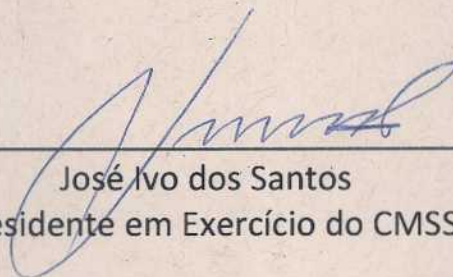 José Ivo dos Santos
esidente em Exercício do CMSS